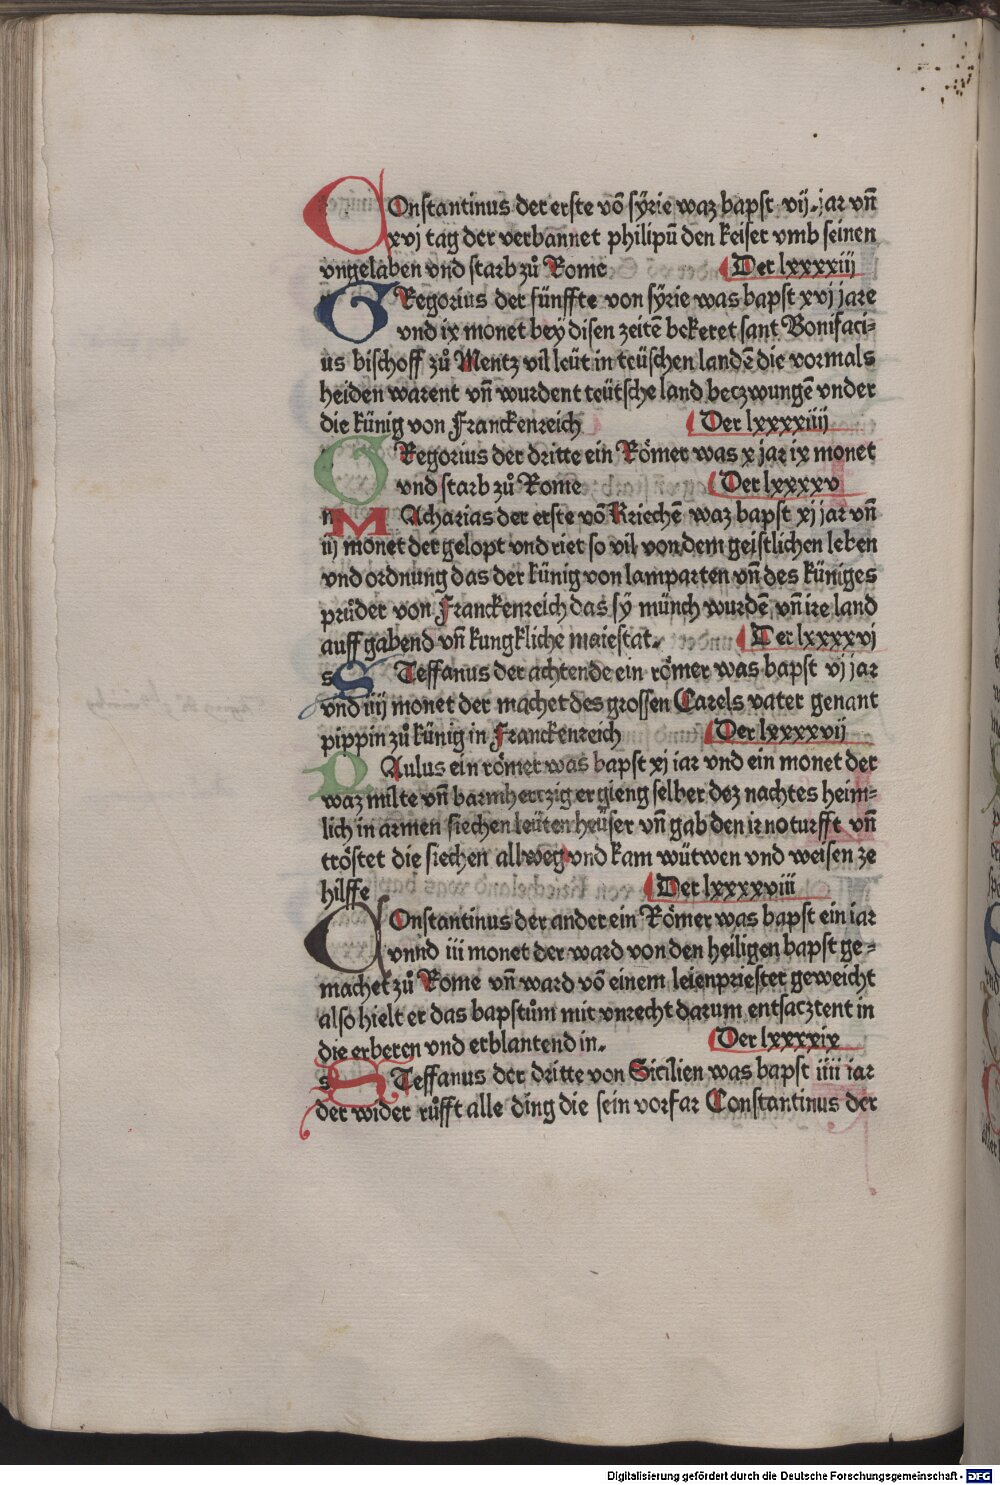 COnstantinus der erste võ sÿrie waz bapst vij. jar vñ
xvj tag der verbannet philipũ den keiser vmb seinen
vngelaben vnd starb zů Rome Der lxxxxiij
GRegorius der fünffte von sÿrie was bapst xvj jare
vnd ix monet beÿ disen zeitẽ bekeret sant Bonifaci-
us bischoff zů Mentz vil leüt in teüschen landẽ die vormals
heiden warent vñ wurdent teütsche land beczwungẽ vnder
die künig von Franckenreich Der lxxxxiiij
GRegorius der dritte ein Römer was x jar ix monet
vnd starb zů Rome Der lxxxxv
MAcharias der erste võ Kriechẽ waz bapst xj jar vñ
iij monet der gelopt vnd riet so vil von dem geistlichen leben
vnd ordnung das der künig von lamparten vñ des küniges
průder von Franckenreich das sÿ münch wurdẽ vñ ire land
auff gabend vñ kungkliche maiestat. Der lxxxxvj
STeffanus der achtende ein römer was bapst vj jar
vnd iiij monet der machet des grossen Carels vater genant
pippin zů künig in Franckenreich Der lxxxxvij
PAulus ein römer was bapst xj iar vnd ein monet der
waz milte vñ barmherczig er gieng selber dez nachtes heim-
lich in armen siechen leüten heüser vñ gab den ir noturfft vñ
tröstet die siechen allweg vnd kam wütwen vnd weisen ze
hilffe Der lxxxxviii
COnstantinus der ander ein Römer was bapst ein iar
vnnd iii monet der ward von den heiligen bapst ge-
machet zů Rome vñ ward võ einem leienpriester geweicht
also hielt er das bapstům mit vnrecht darum entsacztent in
die erberen vnd erblantend in. Der lxxxxix
STeffanus der dritte von Sicilien was bapst iiii iar
der wider růfft alle ding die sein vorfar Constantinus der
Digitalisierung gefördert durch die Deutsche Forschungsgemeinschaft - DFG